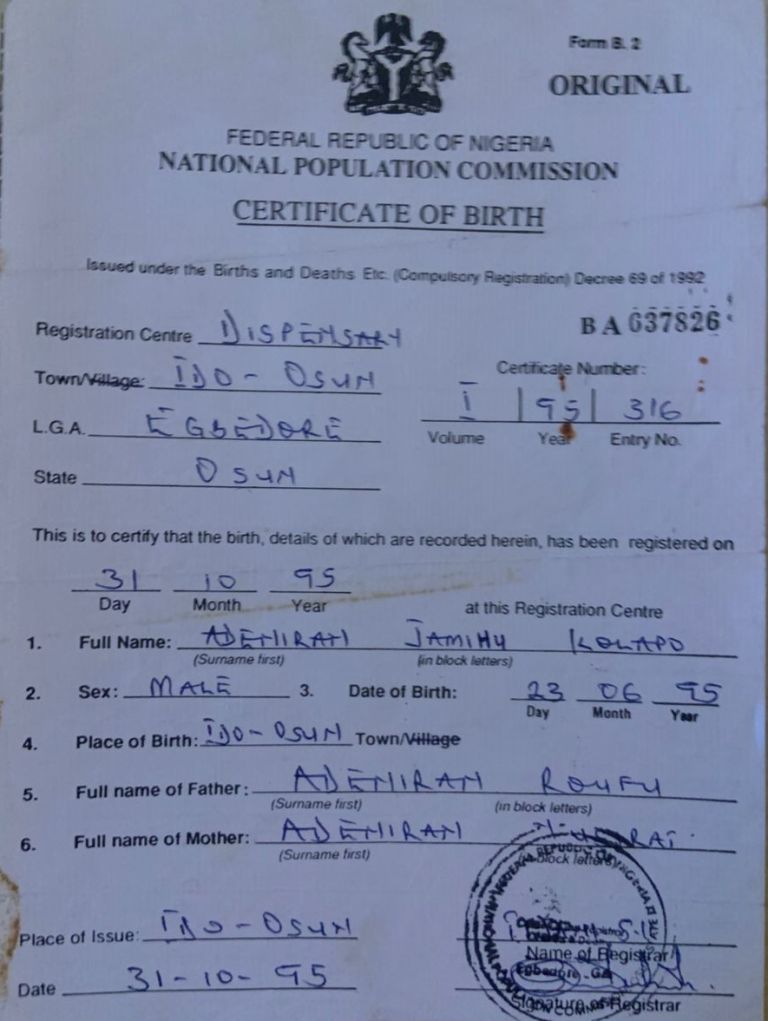 Form B. 2
ORIGINAL
FEDERAL REPUBLIC OF NIGERIA
NATIONAL POPULATION COMMISSION
CERTIFICATE OF BIRTH
Issued under the Births and Deaths Etc. (Compulsory Registration) Decree 69 of 1992
BA 637826
Registration Centre DISPENSARY
Town/Village: IDO-OSUN
Certificate Number:
I | 95 | 316
Volume Year Entry No.
L.G.A. EGBEDORE
State OSUN
This is to certify that the birth, details of which are recorded herein, has been registered on
31 10 95
Day Month Year at this Registration Centre
1. Full Name: ADENIRAN JAMIHU KOLAPO
(Surname first) (in block letters)
2. Sex: MALE 3. Date of Birth: 23 06 95
Day Month Year
4. Place of Birth: IDO-OSUN Town/Village
5. Full name of Father: ADENIRAN ROUFU
(Surname first) (in block letters)
6. Full name of Mother: ADENIRAN
(Surname first) (in block letters)
Place of Issue: IDO-OSUN
Name of Registrar
Date 31-10-95
Signature of Registrar